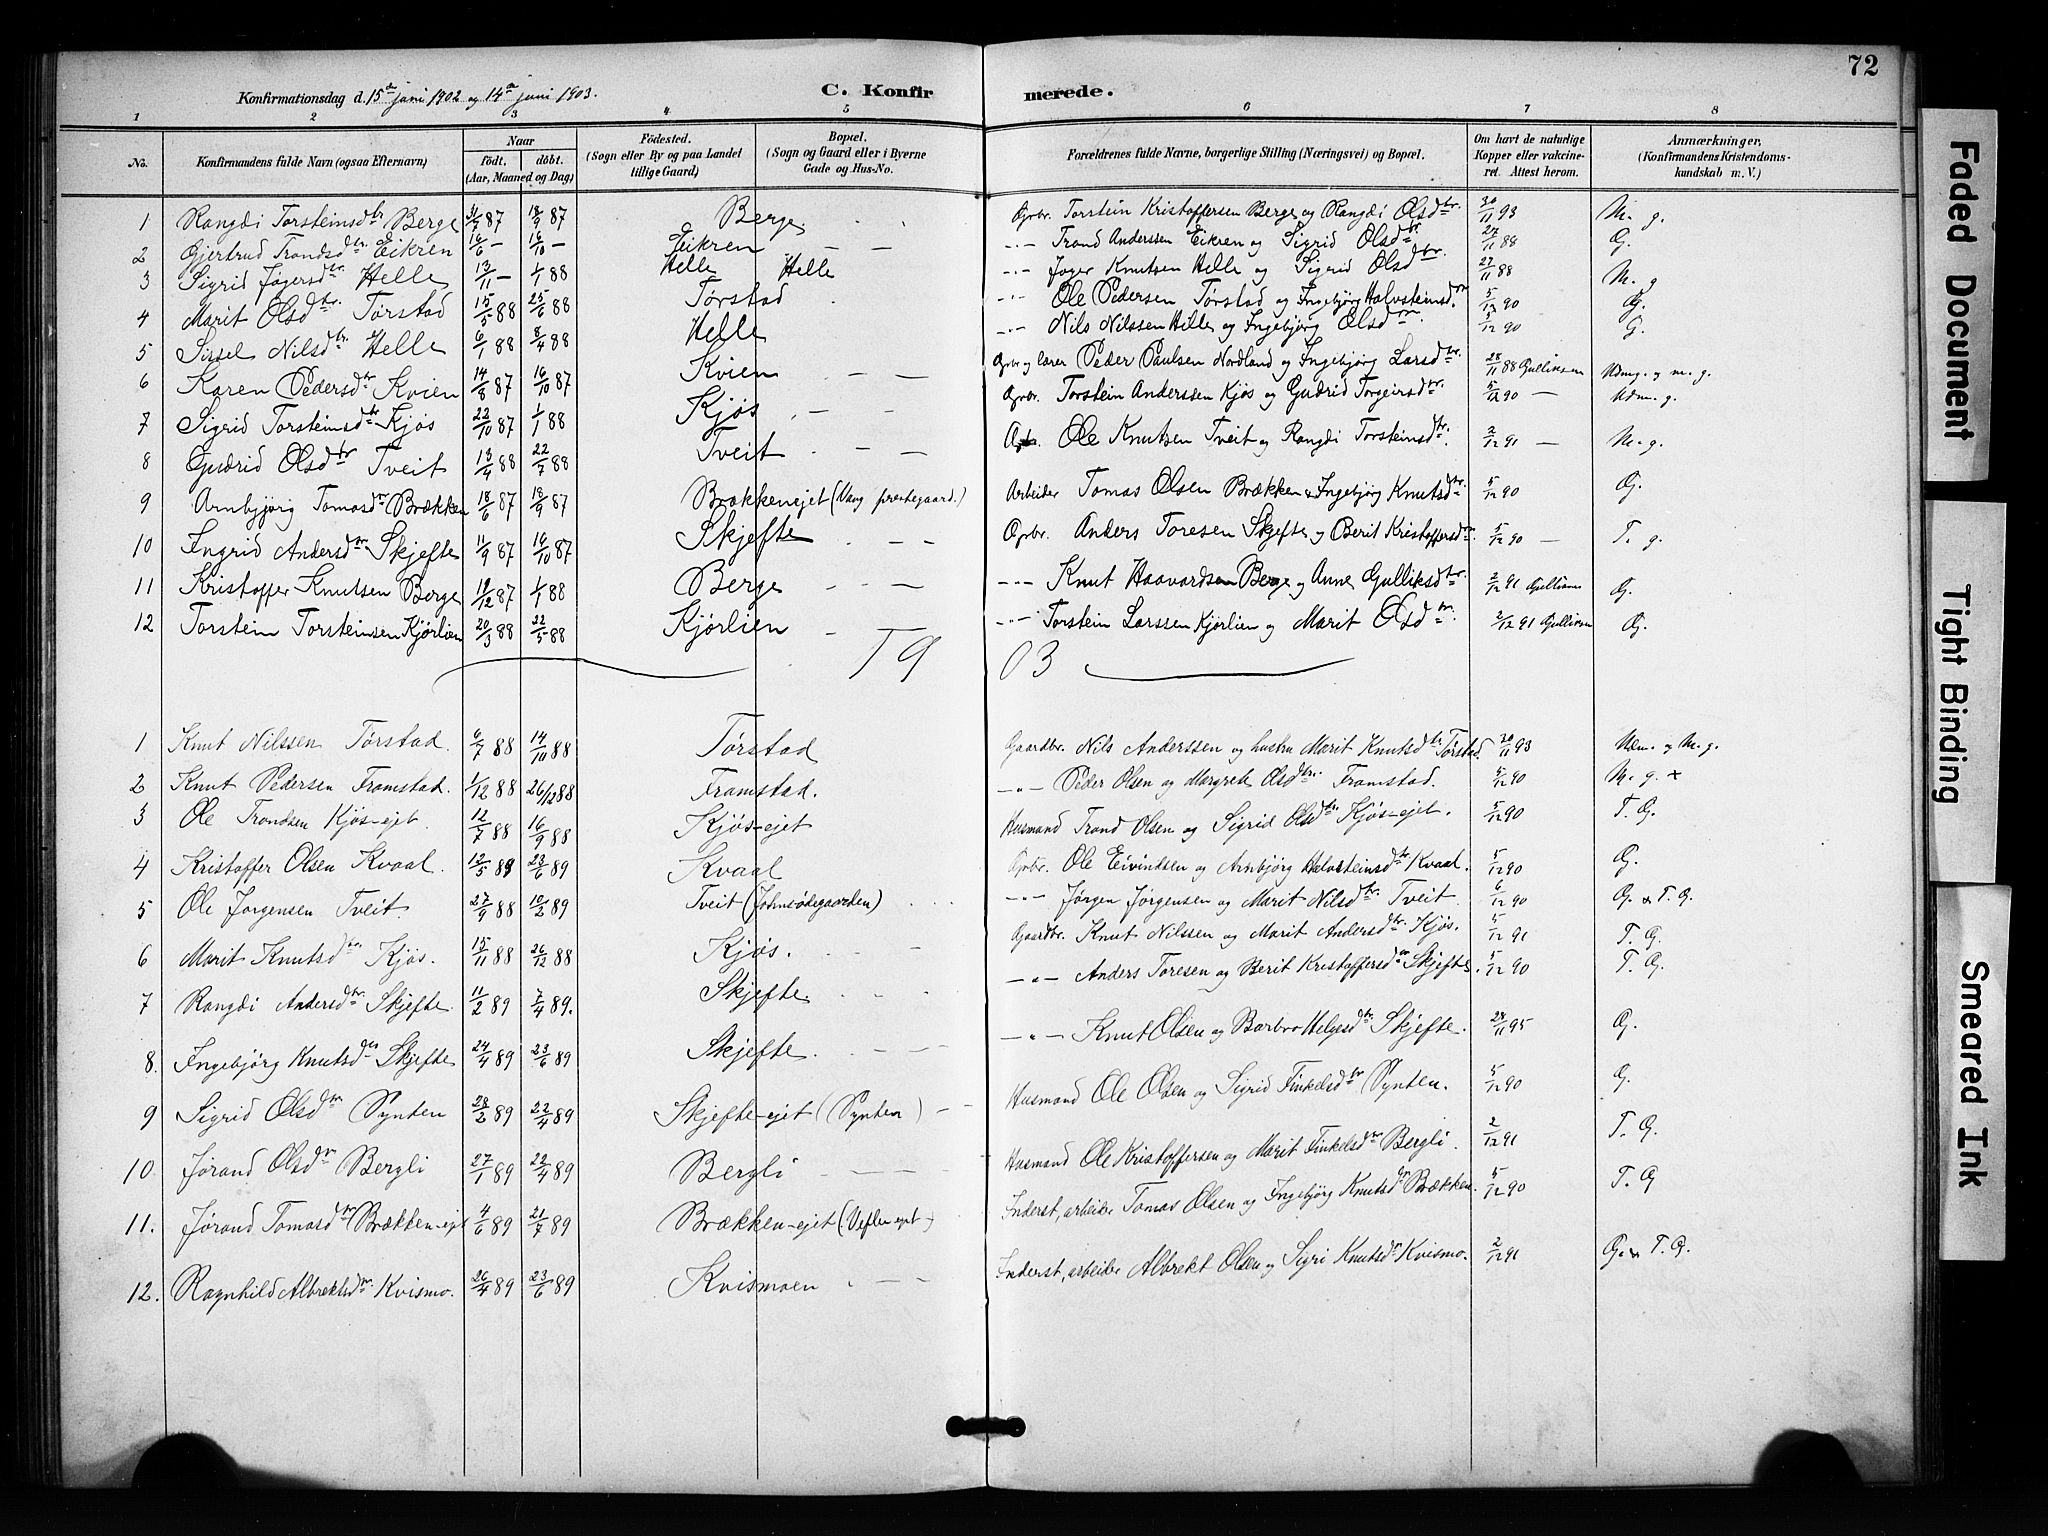 72
Konfirmationsdag d. 15de juni 1902 og 14de juni 1903.
C. Konfirmerede.
1 2 3 4 5 6 7 8
No. Konfirmandens fulde Navn (ogsaa Efternavn) Naar født, døbt. (Aar, Maaned og Dag) Fødested. (Sogn eller By og paa Landet tillige Gaard) Bopæl. (Sogn og Gaard eller i Byerne Gade og Hus-No. Forældrenes fulde Navne, borgerlige Stilling (Næringsvei) og Bopæl. Om havt de naturlige Kopper eller vakcineret. Attest herom. Anmærkninger. (Konfirmandens Kristendomskundskab m. V.)
1 Rangdi Torsteinsdtr Berge 87 18/9 87 Berge Gbr. Torstein Kristoffersen Berge og Rangdi Olsdtr. 30/11 93 M. g.
2 Gjertrud Trondsdtr. Eikren 16/6 — 16/10 — Eikren — — —"— Trond Anderssen Eikren og Sigrid Olsdtr 27/11 88 G.
3 Sigrid Jøgersdtr Helle 13/11 — 1/1 88 Helle Helle —"— Jøger Knutsen Helle og Sigrid Olsdtr. 27/11 88 M. g
4 Marit Olsdtr. Tørstad 15/5 88 25/6 88 Tørstad —"— Ole Pedersen Tørstad og Ingebjørg Halvsteinsdtr 5/12 90 G.
5 Sissel Nilsdtr. Helle 6/1 88 8/4 88 Helle —"— Nils Nilssen Helle og Ingebjørg Olsdtr. 5/12 90 G.
6 Karen Pedersdtr Kvien 14/8 87 16/10 87 Kvien — — Gbr og lærer Peder Paulsen Nordland og Ingebjørg Larsdtr. 28/11 88 Gulliksen Udm. g. og m. g.
7 Sigrid Torsteinsdtr Kjøs 22/10 87 1/1 88 Kjøs — — Gbr. Torstein Anderssen Kjøs og Gudrid Torgeirsdtr 5/12 90 — Udm. g.
8 Gudrid Olsdtr Tveit 13/4 88 22/7 88 Tveit — — Gbr. Ole Knutsen Tveit og Rangdi Torsteinsdtr. 2/12 91 — M. g.
9 Arnbjørg Tomasdtr Brækken 18/6 87 18/9 87 Brækkenejet (Vang prestegaard.) Arbeider Tomas Olsen Brækken & Ingebjørg Knutsdtr 5/12 90 G.
10 Ingrid Andersdtr Skjefte 11/9 87 16/10 87 Skjefte — — Gbr. Anders Toresen Skjefte og Berit Kristoffersdtr. 5/12 90 — T. g.
11 Kristoffer Knutsen Berge 19/12 87 1/1 88 Berge — — —"— Knut Haavardsen Berge og Anne Gulliksdtr 2/12 91 Gulliksen G.
12 Torstein Torsteinsen Kjørlien 20/3 88 22/5 88 Kjørlien — — —"— Torstein Larssen Kjørlien og Marit Olsdtr. 2/12 91 Gulliksen G.
1903
1 Knut Nilssen Tørstad. 6/7 88 14/10 88 Tørstad Gaardbr. Nils Anderssen og hustru Marit Knutsdtr Tørstad. 20/11 93 Udm. og M. g.
2 Knut Pedersen Framstad. 1/12 88 26/12 88 Framstad. —"— Peder Olsen og Margrete Olsdtr. Framstad. 5/12 90 M. g. x
3 Ole Trondsen Kjøs-ejet. 12/7 88 16/9 88 Kjøs-ejet Husmand Trond Olsen og Sigrid Olsdtr. Kjøs-ejet. 5/12 90 T. G.
4 Kristoffer Olsen Kvaal. 12/5 89 23/6 89 Kvaal Gbr. Ole Eivindsen og Arnbjørg Halvsteinsdtr Kvaal. 5/12 90 G.
5 Ole Jørgensen Tveit. 27/9 88 10/2 89 Tveit (Johnsødegaarden) —"— Jørgen Jørgensen og Marit Nilsdtr. Tveit. 6/12 90 G. & T. G.
6 Marit Knutsdtr. Kjøs. 15/11 88 26/12 88 Kjøs. Gaardbr. Knut Nilssen og Marit Andersdtr. Kjøs. 5/12 91 T. G.
7 Rangdi Andersdtr. Skjefte. 11/2 89 7/4 89. Skjefte —"— Anders Toresen og Berit Kristoffersdtr Skjefte. 5/12 90 T. G.
8. Ingebjørg Knutsdtr Skjefte 24/4 89 23/6 89 Skjefte. — — —"— Knut Olsen og Barbro Helgesdtr Skjefte. 28/11 95 G.
9 Sigrid Olsdtr Synten 28/2 89 22/4 89 Skjefte-ejet (Synten) — — Husmand Ole Olsen og Sigrid Finkelsdtr Synten. 5/12 90 G.
10. Jørand Olsdtr Bergli 27/1 89 22/4 89 Bergli — — Husmand Ole Kristoffersen og Marit Finkelsdtr Bergli. 2/12 91 T. G.
11. Jørand Tomasdtr Brækken-ejet 4/6 89 21/7 89 Brækken-ejet (Veflen ejet) Inderst, arbeider Tomas Olsen og Ingebjørg Knutsdtr Brækken. 5/12 90 T. G
12. Ragnhild Albrektsdtr Kvismo. 26/4 89 23/6 89 Kvismoen — — Inderst, arbeider Albrekt Olsen og Sigri Knutsdtr Kvismo. 2/12 91 G. & T. G.
Faded Document
Tight Binding
Smeared Ink